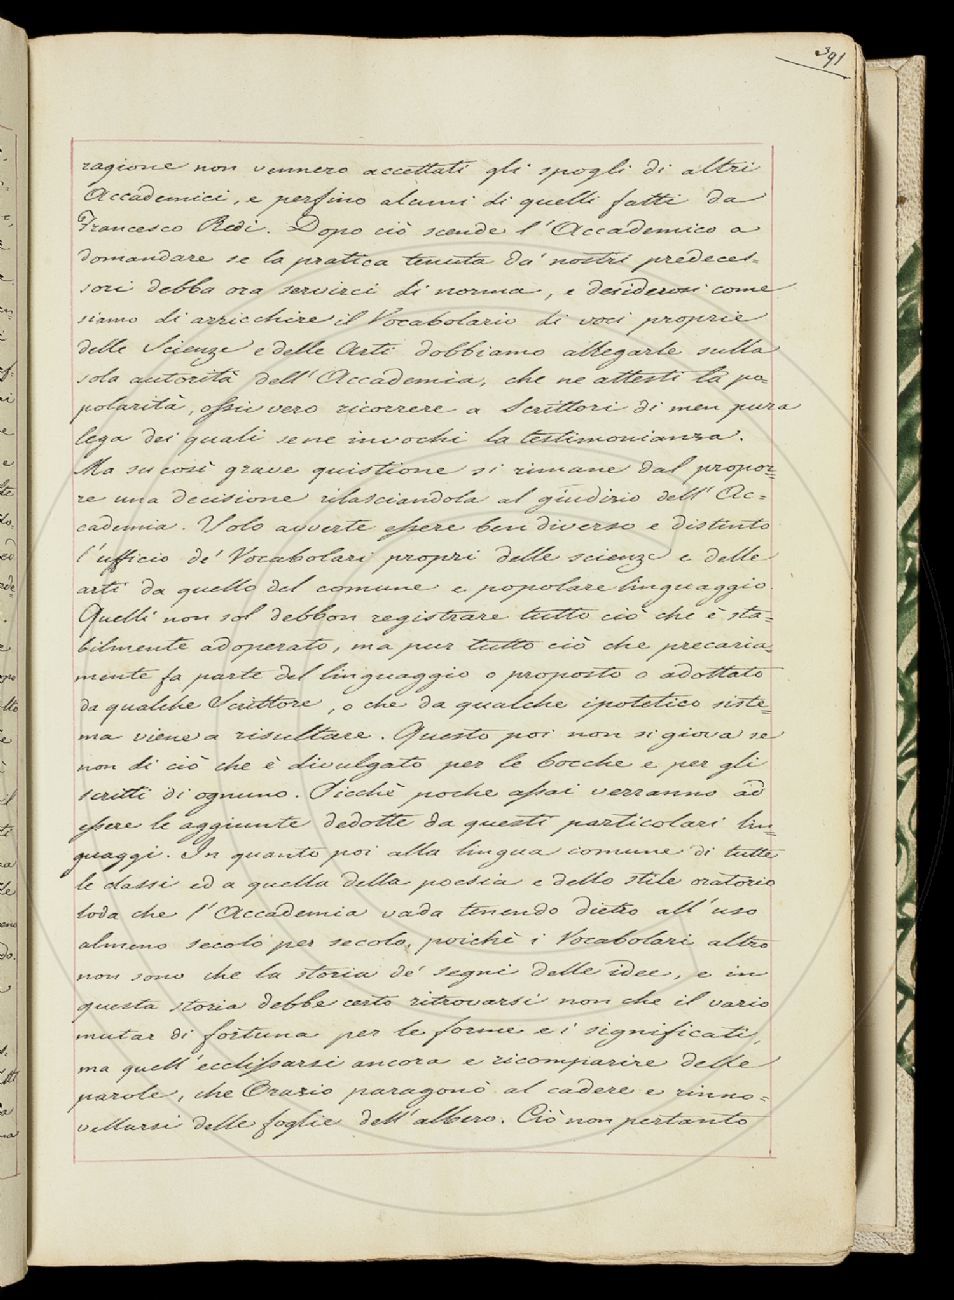 391
ragione non vennero accettati gli spogli di altri
Accademici, e perfino alcuni di quelli fatti da
Francesco Redi. Dopo ciò scende l'Accademico a
domandare se la pratica tenuta da' nostri predeces=
sori debba ora servirci di norma, e desiderosi come
siamo di arricchire il Vocabolario di voci proprie
delle Scienze e delle Arti dobbiamo allegarle sulla
sola autorità dell'Accademia, che ne attesti la po=
polarità, ossivvero ricorrere a Scrittori di men pura
lega dei quali se ne invochi la testimonianza.
Ma su così grave quistione si rimane dal propor=
re una decisione rilasciandola al giudizio dell'Ac=
cademia. Solo avverte essere ben diverso e distinto
l'ufficio de' Vocabolari propri delle scienze e delle
arti da quello del comune e popolare linguaggio.
Quelli non sol debbon registrare tutto ciò che è sta=
bilmente adoperato, ma pur tutto ciò che precaria=
mente fa parte del linguaggio o proposto o adottato
da qualche Scrittore, o che da qualche ipotetico siste=
ma viene a risultare. Questo poi non si giova se
non di ciò che è divulgato per le bocche e per gli
scritti di ognuno. Sicchè poche assai verranno ad
essere le aggiunte dedotte da questi particolari lin=
guaggi. In quanto poi alla lingua comune di tutte
le classi ed a quella della poesia e dello stile oratorio
loda che l'Accademia vada tenendo dietro all'uso
almeno secolo per secolo, poichè i Vocabolari altro
non sono che la storia de' segni delle idee, e in
questa storia debbe certo ritrovarsi non che il vario
mutar di fortuna per le forme e i significati,
ma quell'ecclissarsi ancora e ricomparire delle
parole, che Orazio paragonò al cadere e rinno=
vellarsi delle foglie dell'albero. Ciò non pertanto